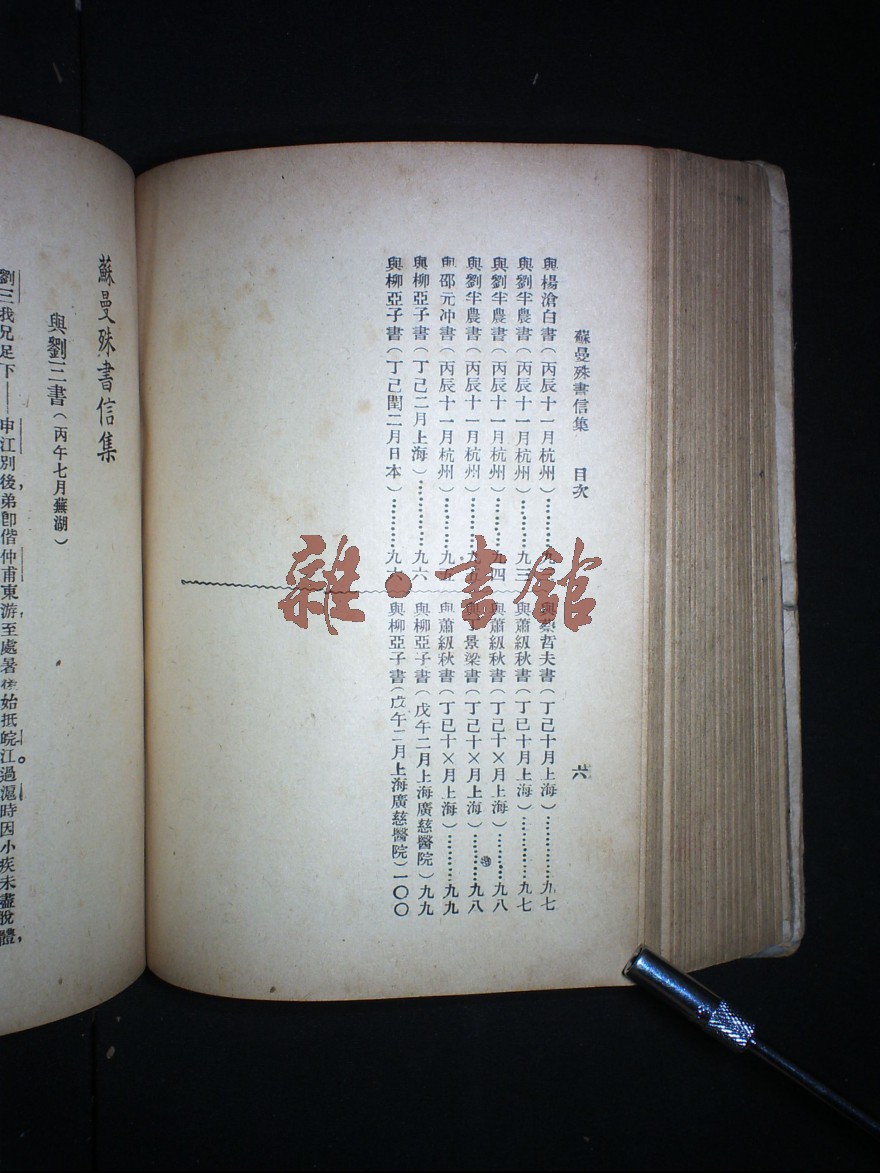 蘇曼殊書信集　目次　六
與楊滄白書（丙辰十一月杭州）…………九
與劉半農書（丙辰十一月杭州）…………九三
與劉半農書（丙辰十一月杭州）…………九四
與劉半農書（丙辰十一月杭州）…………九五
與邵元冲書（丙辰十一月杭州）…………九
與柳亞子書（丁已二月上海）…………九六
與柳亞子書（丁已閏二月日本）…………九六
與蔡哲夫書（丁已十月上海）…………九七
與蕭紉秋書（丁已十月上海）…………九七
與蕭紉秋書（丁已十×月上海）…………九八
與丁景梁書（丁已十×月上海）…………九八
與蕭紉秋書（丁已十×月上海）…………九九
與柳亞子書（戊午二月上海廣慈醫院）九九
與柳亞子書（戊午二月上海廣慈醫院）一〇〇
蘇曼殊書信集
與劉三書（丙午七月蕪湖）
劉三我兄足下——申江別後，弟卽偕仲甫東游，至處暑後始抵皖江。過滬時因小疾未盡脫體，
雜·書館